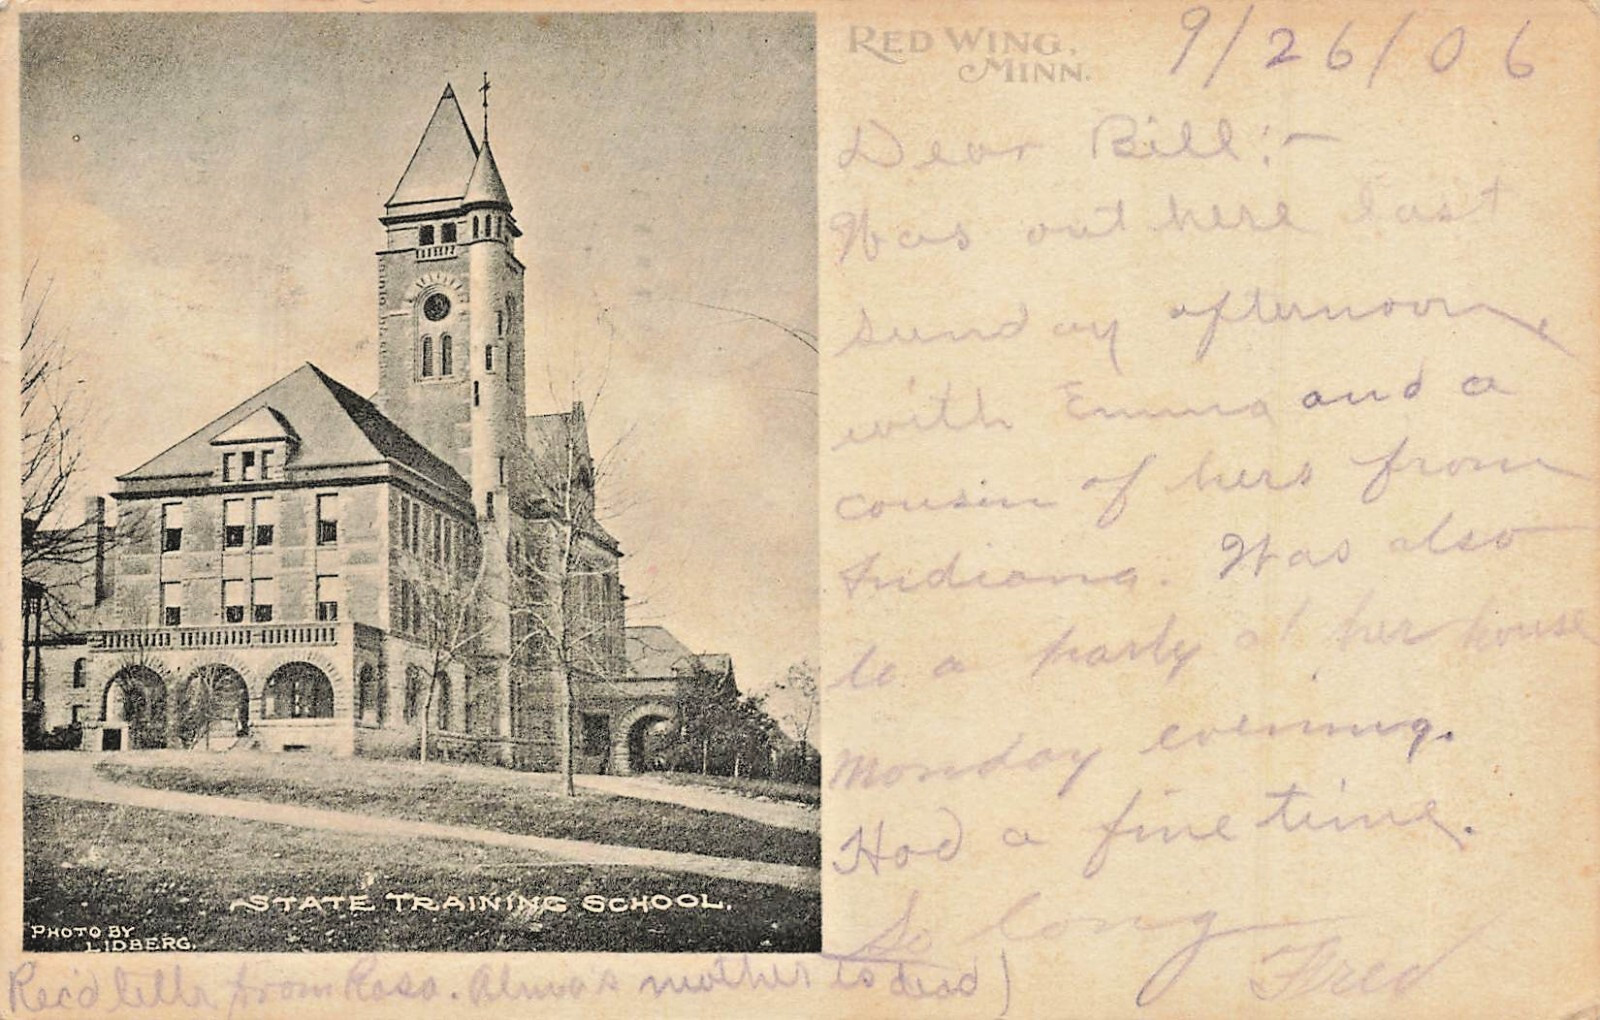 RED WING,
MINN.
9/26/06
Dear Bill:-
Was out here last
Sunday afternoon,
with Emma and a
cousin of hers from
Indiana. Was also
to a party at her house
Monday evening.
Had a fine time.
So long
Fred
STATE TRAINING SCHOOL.
PHOTO BY
LIDBERG.
Rec'd letter from Rosa. Alma's mother is dead)